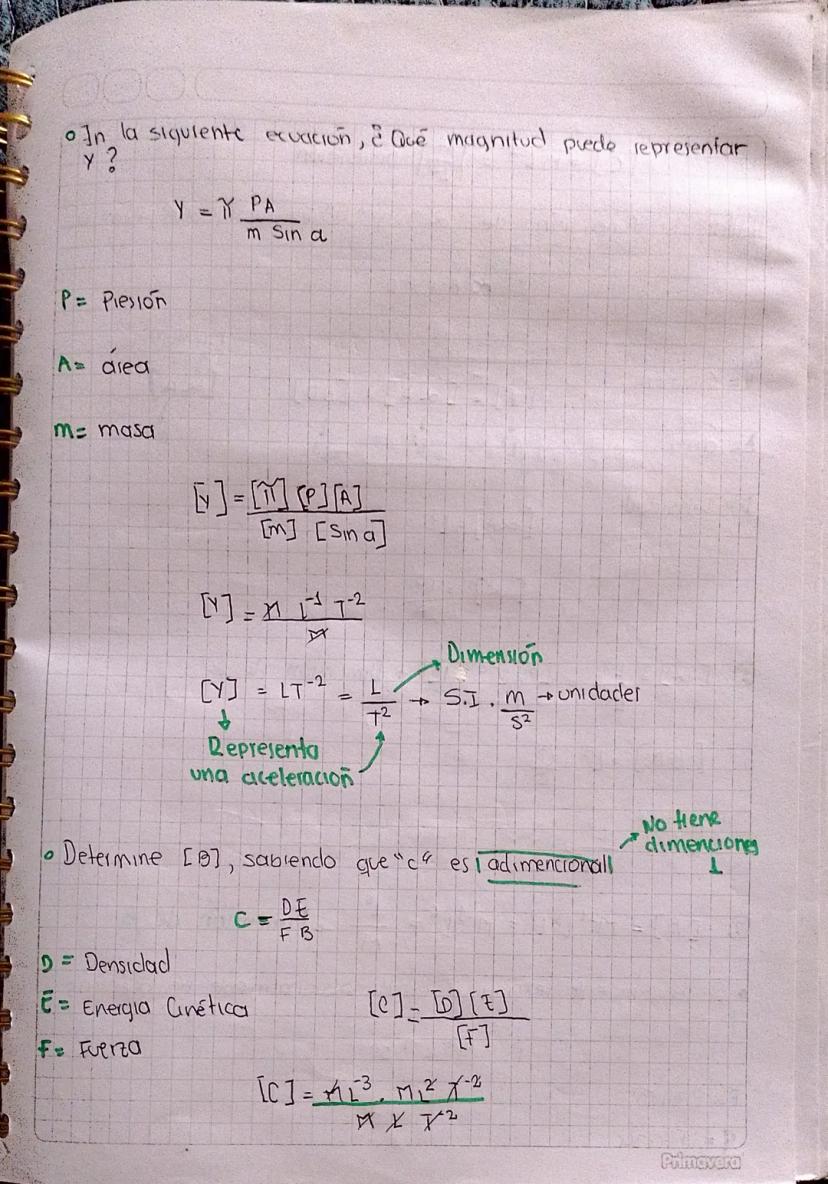 ° In la siguiente ecuación, ¿Qué magnitud puede representar
Y?
Y = π PA / m Sin a
P = Presión
A = área
m = masa
[Y] = [π] [P] [A] / [m] [Sin a]
[Y] = M L⁻¹ T⁻² / M
Dimensión
[Y] = LT⁻² = L / T² → S.I. m / S² → unidades
Representa
una aceleración
No tiene
dimenciones
1
° Determine [B], sabiendo que "c" es adimencional
C = DE / F B
D = Densidad
E = Energia Cinética
[C] = [D] [E] / [F]
F = Fuerza
[C] = M L⁻³ . M L² T⁻² / M L T⁻²
Primavera